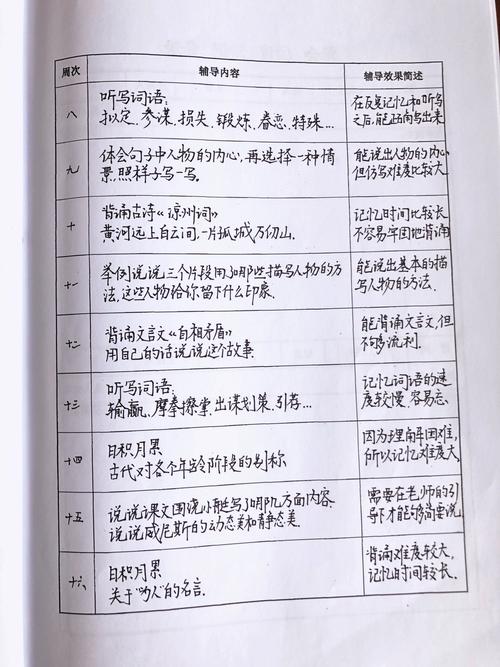 周次 辅导内容 辅导效果简述
八
听写词语:
拟定、参谋、损失、锻炼、眷恋、特殊...
在反复记忆和听写
之后,能正确写出来
九
体会句子中人物的内心,再选择一种情
景,照样子写一写。
能说出人物的内心
但仿写难度比较大
十
背诵古诗《凉州词》
黄河远上白云间,一片孤城万仞山。
记忆时间比较长
不容易牢固地背诵
十一
举例说说三个片段用了哪些描写人物的方
法,这些人物给你留下什么印象.
能说出基本的描
写人物的方法.
十二
背诵文言文《自相矛盾》
用自己的话说说这个故事.
能背诵文言文,但
不够流利.
十三
听写词语:
输赢、摩拳擦掌、出谋划策、引荐...
记忆词语的速
度较慢、容易忘.
十四
日积月累
古代对各个年龄阶段的别称
因为理解困难,
所以记忆难度大.
十五
说说课文围绕小艇写了哪几方面内容.
说说威尼斯的动态美和静态美.
需要在老师的引
导下才能够简要说
十六
日积月累
关于"的名言.
背诵难度较大,
记忆时间较长.